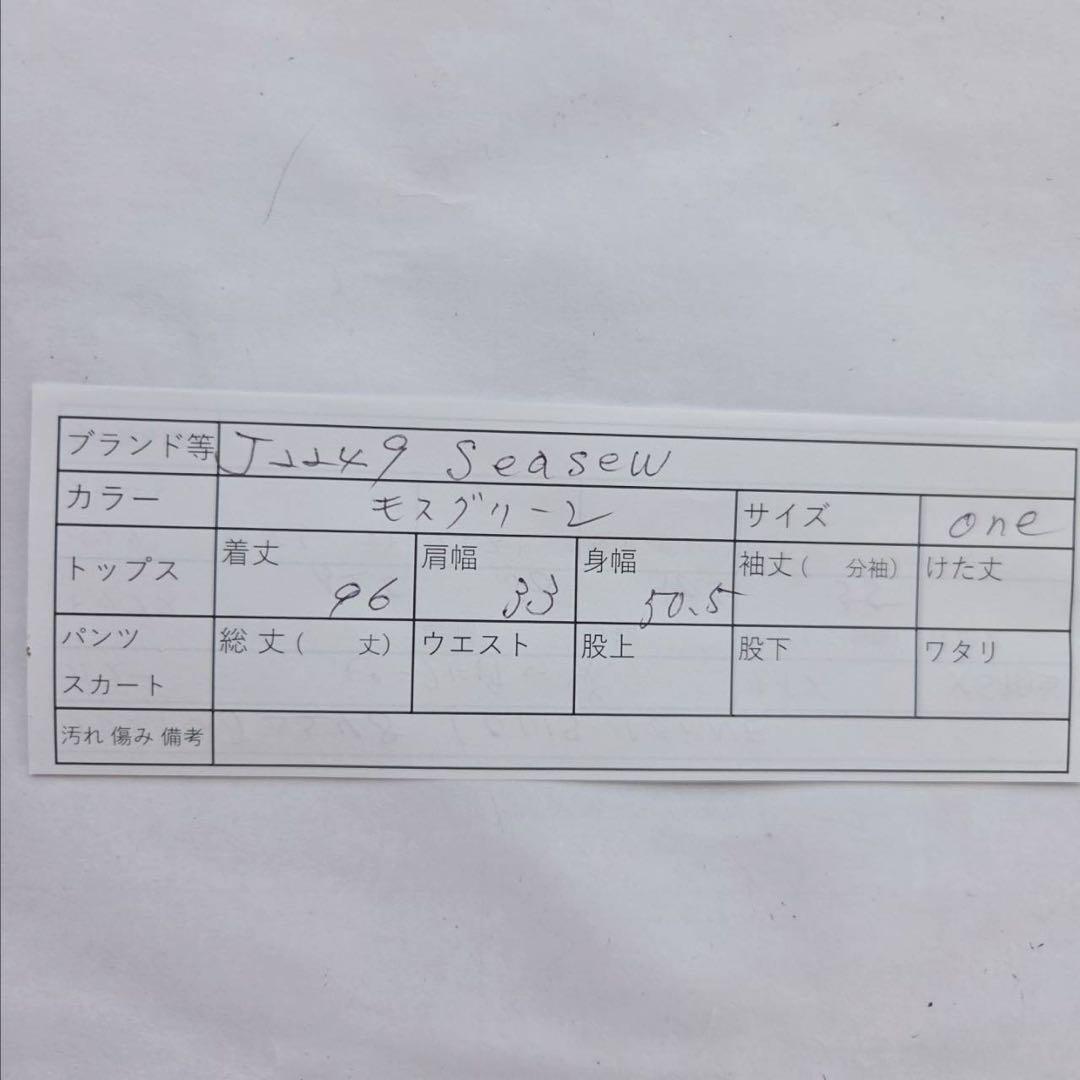 ブランド等 J2249 Seasew
カラー モスグリーン サイズ one
トップス 着丈 96 肩幅 33 身幅 50.5 袖丈( 分袖) けた丈
パンツ スカート 総丈( 丈) ウエスト 股上 股下 ワタリ
汚れ 傷み 備考